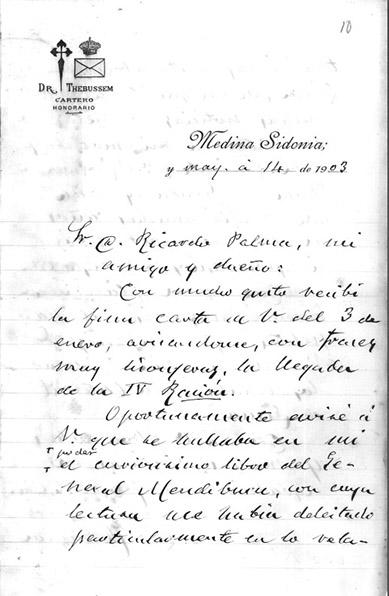 10
DR. THEBUSSEM
CARTERO
HONORARIO
Medina Sidonia;
y may. à 14, de 1903
Sr. D. Ricardo Palma, mi
amigo y dueño:
Con mucho gusto recibí
la fina carta de V. del 3 de
enero, avisandome, con frases
muy lisonjeras, la llegada
de la IV Ración.
Oportunamente avisé á
V. que se hallaba en mi
poder
el curiosísimo libro del Ge-
neral Mendiburu, con cuya
lectura me habia deleitado
particularmente en lo rela-